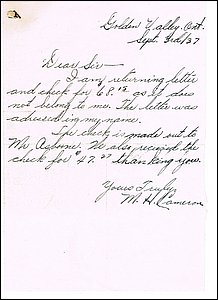 Golden Valley, Ont.
Sept. 3rd/37
Dear Sir—
I am returning letter
and check for 68.12 as it does
not belong to me. The letter was
adressed in my name.
The check is made out to
Mr. Osborne. We also received the
check for $47.27 thanking you.
Yours Truly,
M. H. Cameron